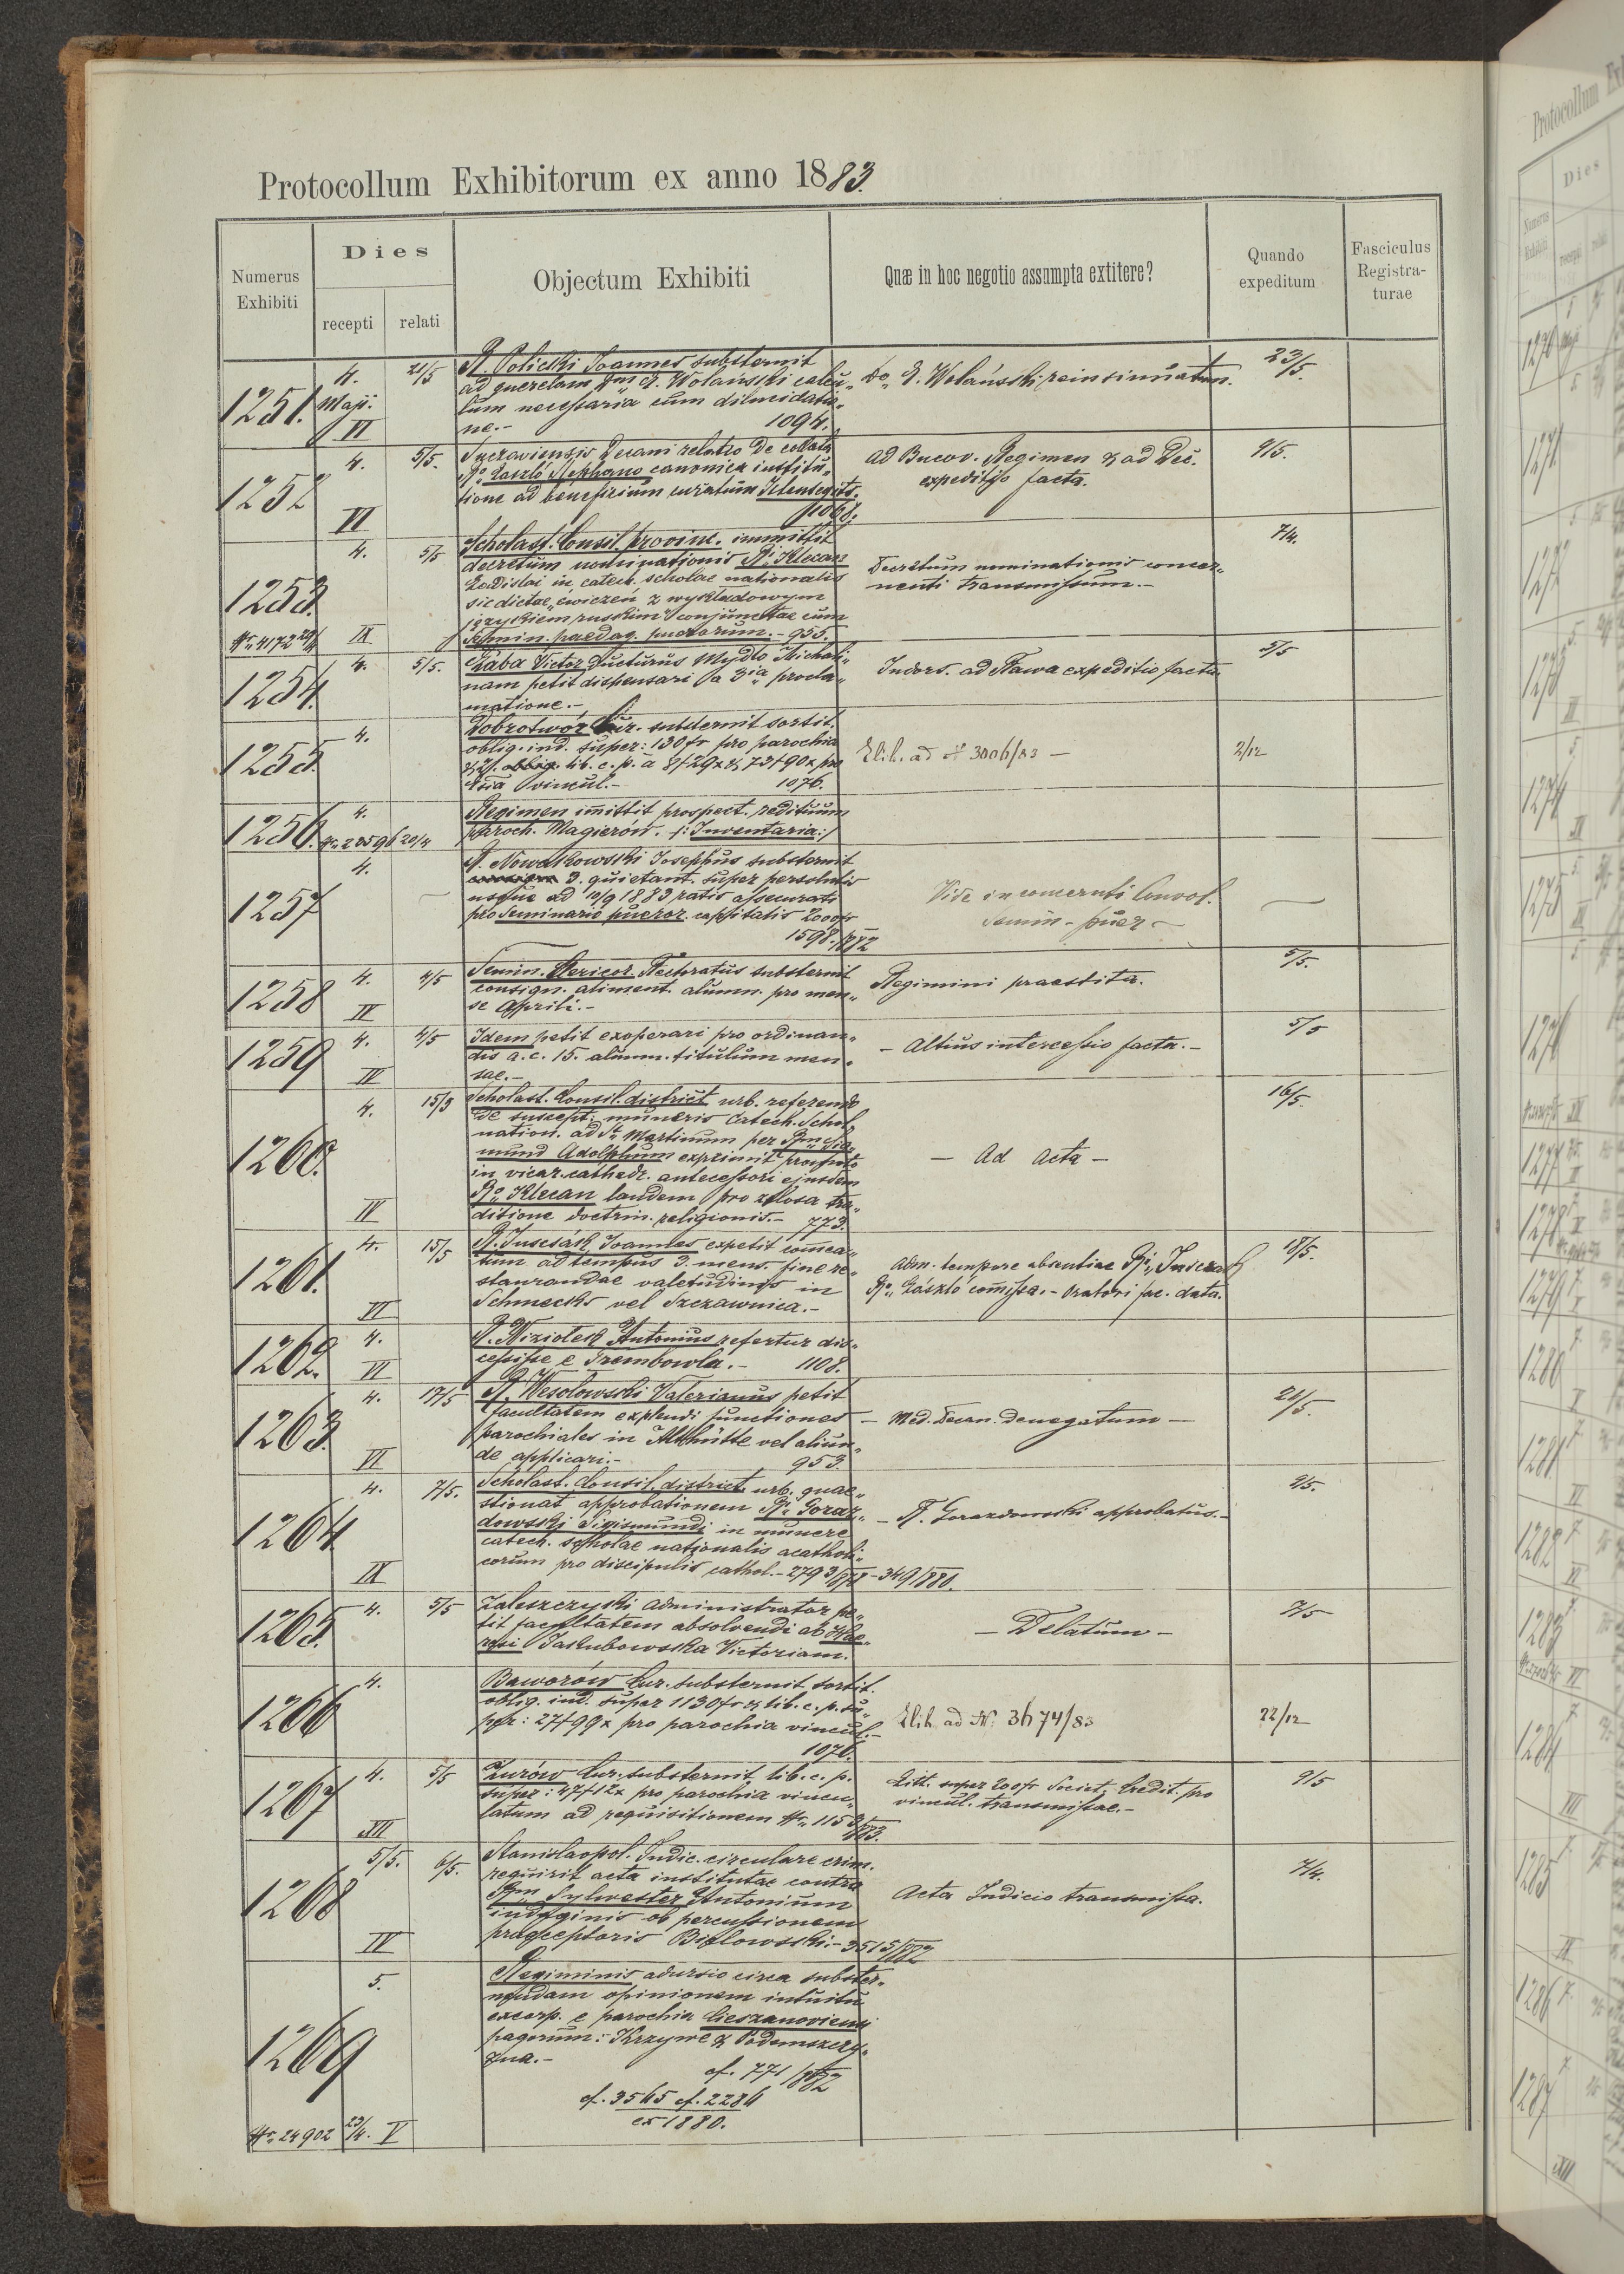 Protocollum Exhibitorum ex anno 1883.
Numerus Exhibiti
Dies
recepti
relati
Objectum Exhibiti
Quæ in hoc negotio assumpta extitere?
Quando expeditum
Fasciculus Registra-
turae
1251.
4.
Maji.
VI
21/5
R. Policki Joannes substernit
ad querelam Dni G. Wolański calcu„
lum necessaria cum dilucidatio„
ne.- 1094.
Do G. Wolański reinsinuatum.
23/5.
1252
4.
VI
5/5.
Suczaviensis Decani relatio de collata
Ro László Stephano canonica institu„
tione ad beneficium curatum Istensegits.
1068.
ad Bucov. Regimen & ad Dec.
expeditio facta.
9/5.
1253.
Nr. 4172
4.
IX
5/5
Scholast. Consil. provinc. immittit
decretum nominationis Ri Klecan
Ladislai in catech. scholae nationalis
sic dictae „ćwiczeń z wykładowym
językiem ruskim" conjunctae cum
Semin. paedag. puerorum.- 955.
Decretum nominationis concer„
nenti transmissum.-
7/4.
1254.
4.
5/5.
Żaba Victor ducturus Mydło Michali„
nam petit dispensari a 3ia procla„
matione.-
Indors. ad Rawa expeditio facta
5/5
1255.
4.
Dobrotwór Cur. substernit sortit.
oblig. ind. super: 130 fr pro parochia
& 2 lib. c. p. a 8f29x & 73f90x pro
vincul.- 1076.
Elib. ad N 3006/83 -
2/12
1256.
Nr. 23596 20/4
4.
Regimen imittit prospect. redituum
paroch. Magierów. /: Inventaria:/
1257
4.
R. Nowakowski Josephus substernit
3. quietant. super persolutis
usque ad 10/9 1883 ratis assecurati
pro Seminario pueror. capitatis 2000 fr
1598./882
Vide in concernenti Convol.
Semin. puer
1258
4.
IV
4/5
Semin. Clericor. Rectoratus substernit
consign. aliment. alumn. pro men„
se Aprili.-
Regimini praestita.
5/5.
1259
4.
IV
4/5
Idem petit exoperari pro ordinan„
dis a. c. 15. alumn. titulum men„
sae.-
- Altius intercessio facta.-
5/5
1260.
4.
IV
15/5
Scholast. Consil. district. urb. referendo
de suscept. muneris Catech. Schol.
nation. ad St. Martinum per Rm Sig„
mund Adolphum exprimit
in vicar. cathedr. antecessori ejusdem
Ro Klecan laudem pro zelosa tra„
ditione doctrin. religionis.- 773.
- Ad Acta -
16/5.
1261.
4.
VI
15/5
R. Juscsák Joannes expetit comea„
tum ad tempus 3. mens. fine re„
staurandae valetudinis in
Schmecks vel Szczawnica.-
Adm. tempore absentiae Ri
Ro László comissa.- Oratori fac. data.
18/5.
1262.
4.
VI
R. Niziołek Antonius refertur dis„
cessisse e Trembowla.- 1108.
1263.
4.
VI
17/5
R. Wesołowski Valerianus petit
facultatem explendi functiones
parochiales in Althütte vel aliun„
de applicari.- 953.
- Med. Decan. denegatum -
21/5.
1264
4.
IX
7/5.
Scholast. Consil. district. urb. quae„
stionat approbationem Ri Goraz„
dowski Sigismundi in munere
catech. scholae nationalis acatholi„
corum pro discipulis cathol.- 2793/878 - 349/880.
- R. Gorazdowski approbatus.-
9/5.
1265.
4.
5/5
Zaleszczyski Administrator pe„
tit facultatem absolvendi ab Hae„
resi Jakubowska Victoriam.
- Delatum -
7/5
1266
4.
Baworów Cur. substernit sortit.
oblig. ind. super 1130 fr & lib. c. p. su„
per: 27f99x pro parochia vincul.-
1076.
Elib. ad N. 3674/83
22/12
1267
4.
XII
5/5
Żurów Cur. substernit lib. c. p.
super: 47f12x pro parochia vincu„
latum ad requisitionem Nr. 1153/883.
Litt. super 200 fr Societ. Credit. pro
vincul. transmissae.-
9/5
1268
5/5.
IV
6/5.
Stanislaopol. Judic. circulare crim.
requirit acta institutae contra
Rm Sylwester Antonium
indaginis ob percussionem
praeceptoris Biełowski.- 3515/882
Acta Judicio transmissa.
7/4.
1269
Nr. 24902 23/4.
5.
V
Regiminis adursio circa subster„
nendam opinionem intuitu
excorp. e parochia Cieszanoviensi
pagorum: Krzywe & Podemszczy„
zna.-
cf. 771/882
cf. 3565 cf. 2286
ex 1880.